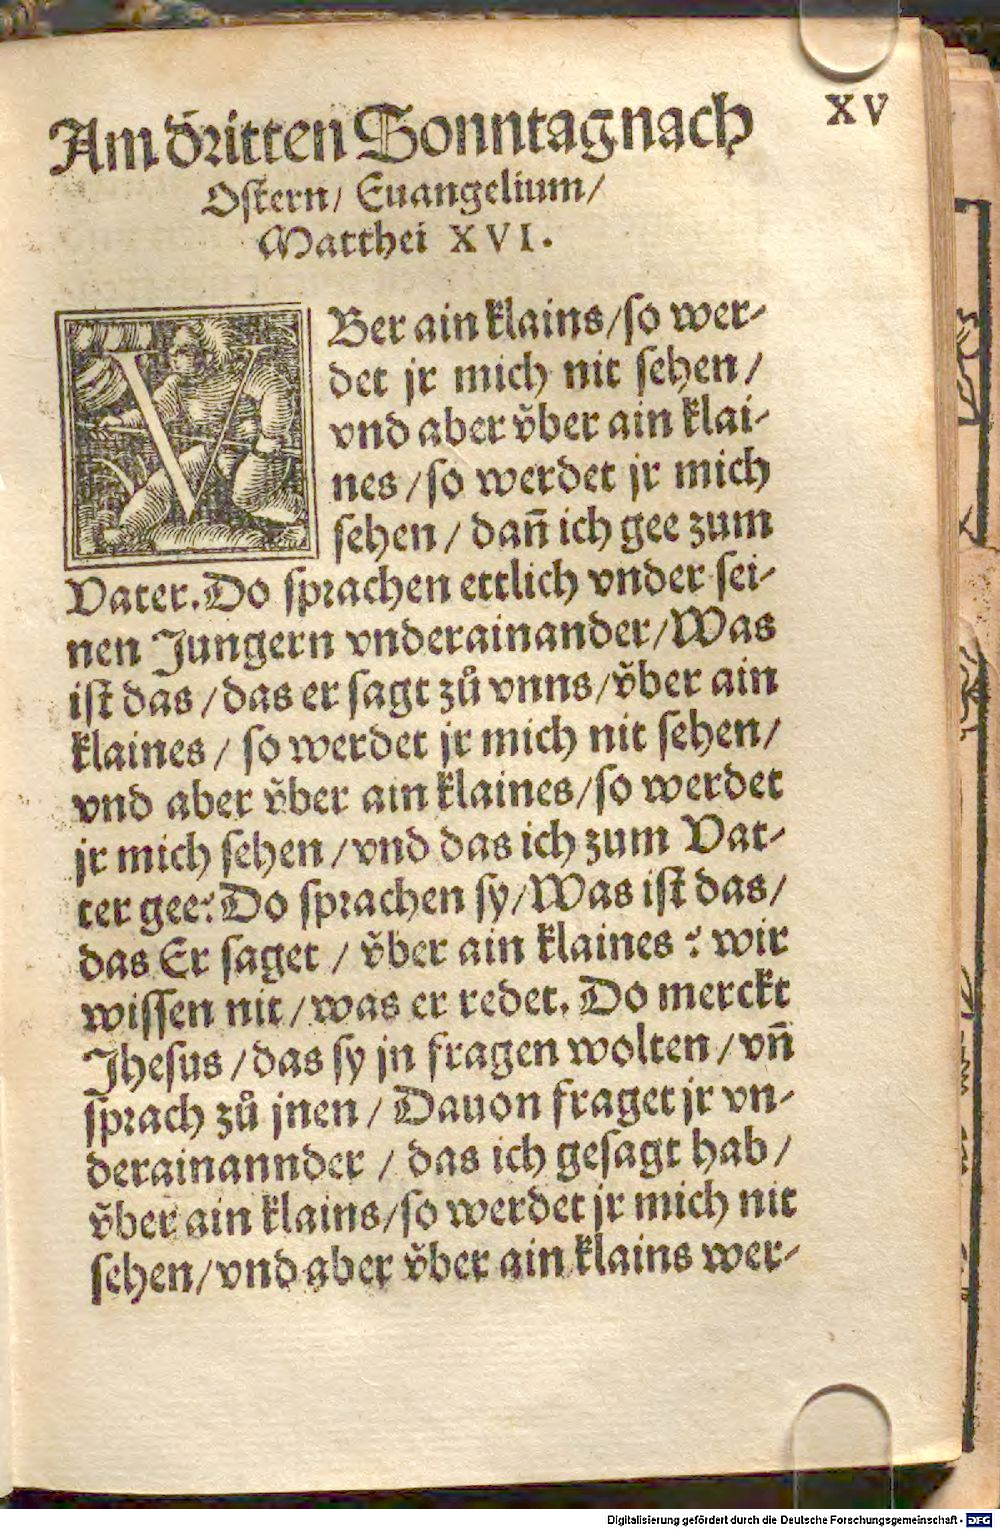 XV
Am dritten Sonntag nach
Ostern/ Euangelium/
Matthei XVI.
VBer ain klains/so wer-
det jr mich nit sehen/
vnd aber vͤber ain klai-
nes/so werdet jr mich
sehen/ dañ ich gee zum
Vater. Do sprachen ettlich vnder sei-
nen Jungern vnderainander/Was
ist das/das er sagt zů vnns/vͤber ain
klaines/ so werdet jr mich nit sehen/
vnd aber vͤber ain klaines/so werdet
jr mich sehen/vnd das ich zum Vat-
ter gee? Do sprachen sy/Was ist das/
das Er saget/ vͤber ain klaines? wir
wissen nit/was er redet. Do merckt
Jhesus/das sy jn fragen wolten/vñ
sprach zů jnen/ Dauon fraget jr vn-
derainannder/ das ich gesagt hab/
vͤber ain klains/so werdet jr mich nit
sehen/vnd aber vͤber ain klains wer-
Digitalisierung gefördert durch die Deutsche Forschungsgemeinschaft - DFG